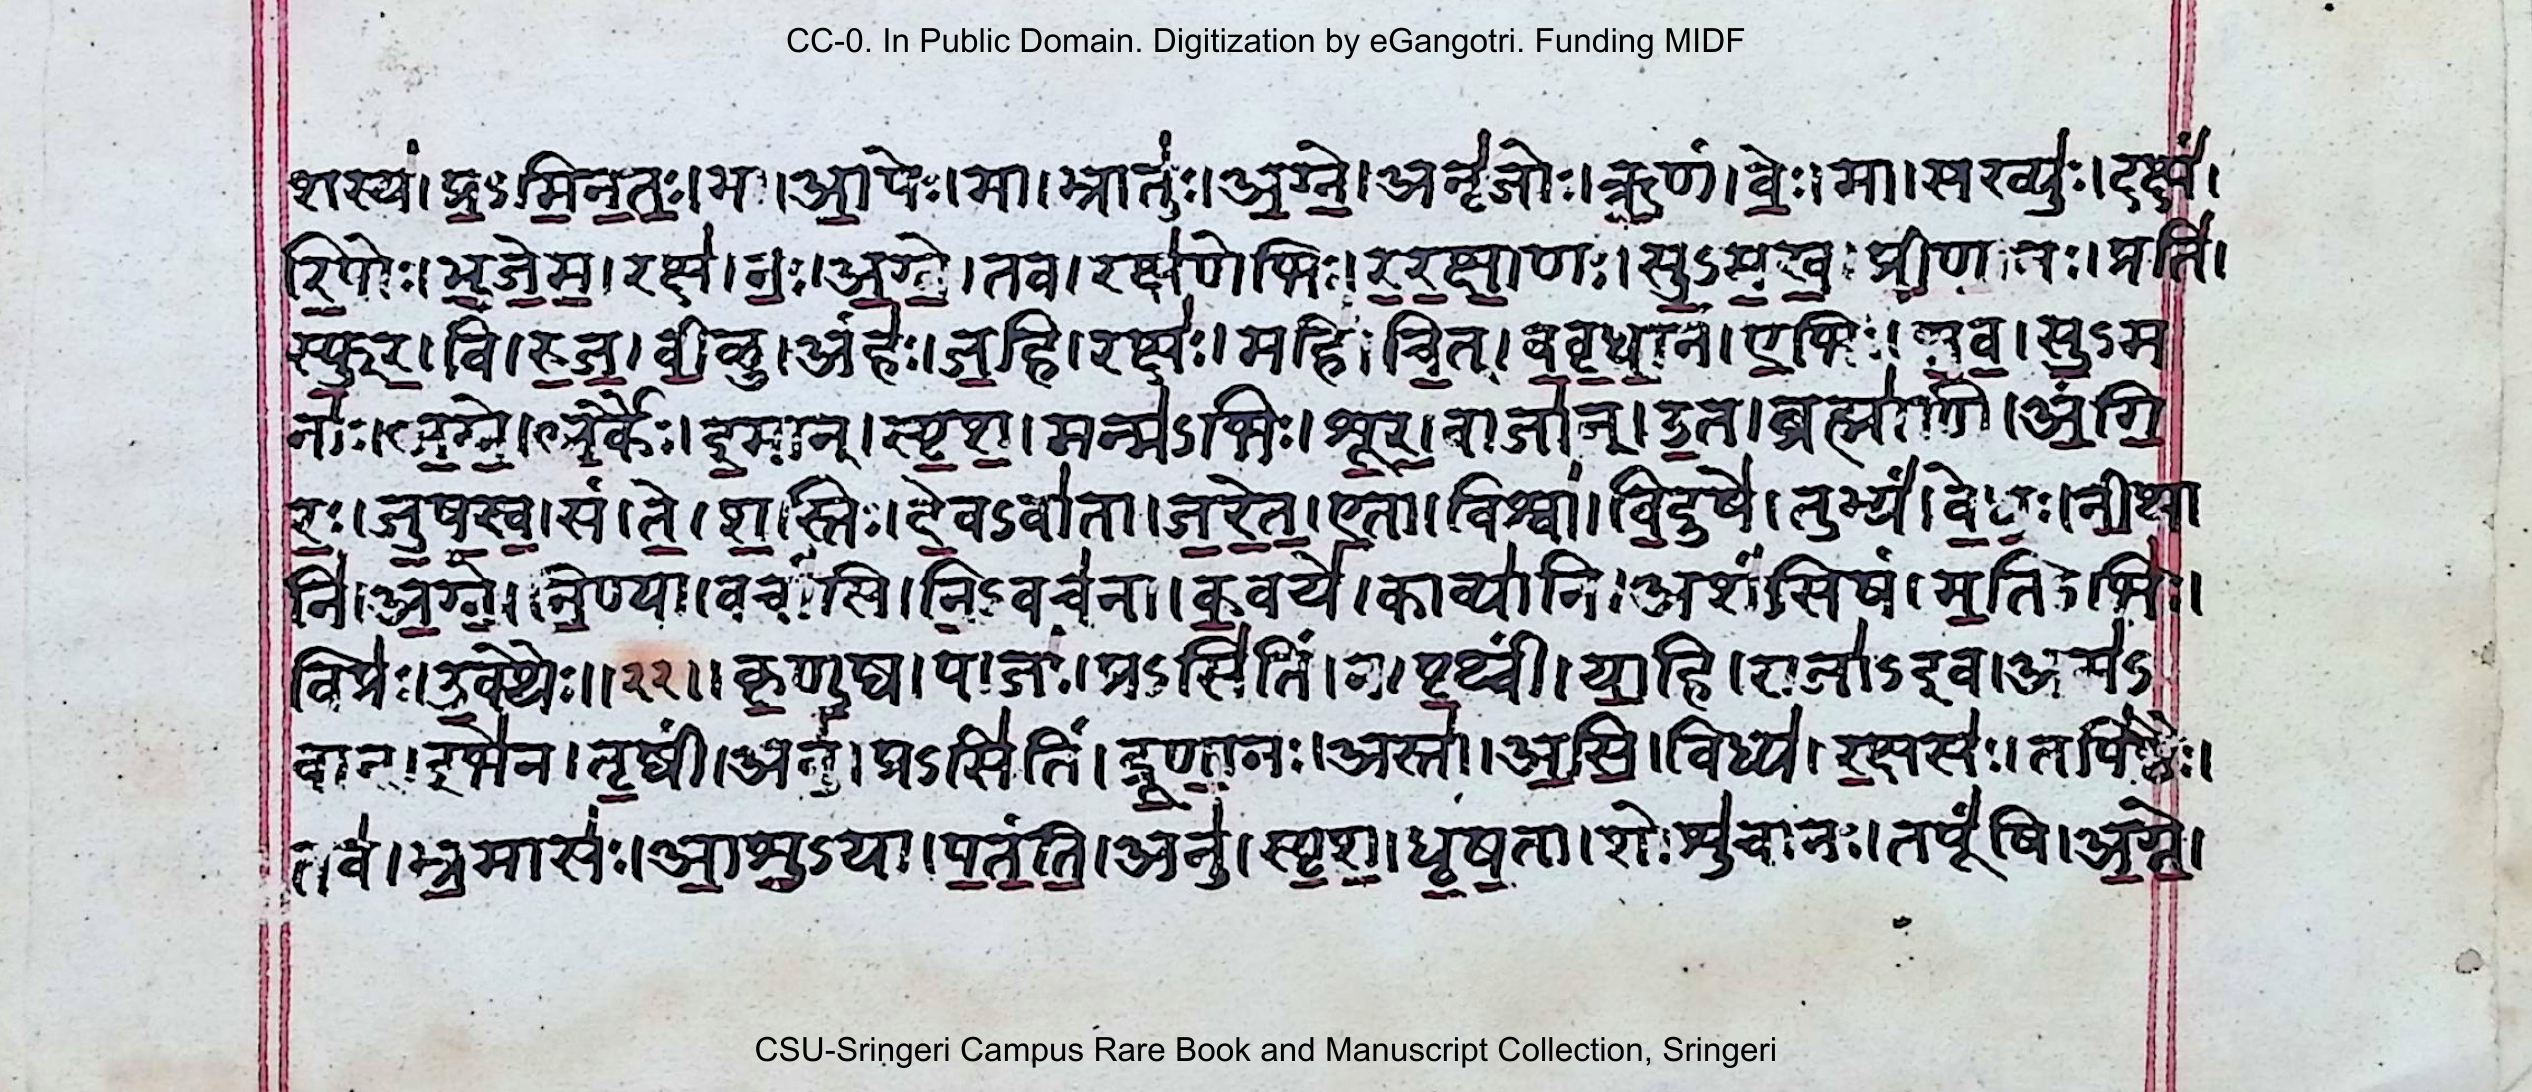 CC-0. In Public Domain. Digitization by eGangotri. Funding MIDF
शस्य॑। प्र॒ऽमि॒न॒तः॒। मा। आ॒पेः। मा। भ्रातुः॑। अ॒ग्ने॒। अनृ॑जोः। ऋ॒णं। वेः॒। मा। सख्युः॑। दक्षं॑।
रि॒पोः। भु॒जे॒म॒। रक्ष॑। नः॒। अ॒ग्ने॒। तव। रक्ष॑णेभिः। र॒र॒क्षा॒णः। सु॒ऽम॒ख॒। प्री॒णा॒नः। प्रति॑।
स्फु॒र॒। वि। रु॒ज॒। वी॒ळु। अंहः॑। ज॒हि। रक्षः॑। महि॑। चि॒त्। व॒वृ॒धा॒नं। ए॒भिः। भ॒व॒। सु॒ऽम
नाः॑। अ॒ग्ने॒। अ॒र्कैः। इ॒मान्। स्पृ॒श॒। मन्म॑ऽभिः। शू॒र॒। वाजा॑न्। उ॒त। ब्रह्मा॑णि। अं॒गि॒
रः॒। जु॒ष॒स्व॒। सं। ते॒। श॒स्तिः। दे॒वऽवा॑ता। ज॒रे॒त॒। ए॒ता। विश्वा॑। वि॒दुषे॑। तुभ्यं॑। वे॒धः॒। नी॒था
नि॑। अ॒ग्ने॒। नि॒ण्या। वचां॑सि। नि॒ऽवच॑ना। क॒वये॑। काव्या॑नि। अशं॑सिषं। म॒तिऽभिः॑।
विप्रः॑। उ॒क्थैः॥२२॥ कृ॒णु॒ष्व। पाजः॑। प्रऽसि॑तिं। न। पृ॒थ्वीं। या॒हि। राजा॑ऽइव। अम॑ऽ
वान्। इभे॑न। तृ॒ष्वीं। अनु॑। प्रऽसि॑तिं। द्रू॒णा॒नः। अस्ता॑। अ॒सि॒। विध्य॑। र॒क्षसः॑। तपि॑ष्ठैः।
तव॑। भ्र॒मासः॑। आ॒शु॒ऽया। प॒तं॒ति॒। अनु॑। स्पृ॒श॒। धृ॒ष॒ता। शोशु॑चानः। तपूं॑षि। अ॒ग्ने॒।
CSU-Sringeri Campus Rare Book and Manuscript Collection, Sringeri